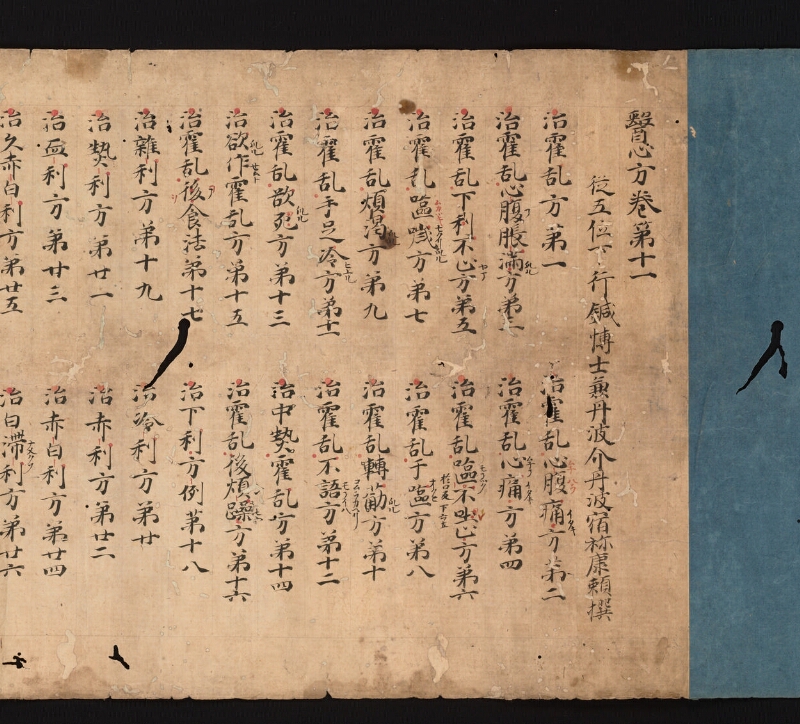 醫心方卷第十一
從五位下行鍼博士兼丹波介丹波宿祢康頼撰
治霍乱方第一
治霍乱心腹痛方第二
治霍乱心腹脹滿方第三
治霍乱心痛方第四
治霍乱下利不止方第五
治霍乱嘔不止方第六
治霍乱嘔噦方第七
治霍乱干嘔方第八
治霍乱煩渇方第九
治霍乱轉筋方第十
治霍乱手足冷方第十一
治霍乱不語方第十二
治霍乱欲死方第十三
治中熱霍乱方第十四
治欲作霍乱方第十五
治霍乱後煩躁方第十六
治霍乱後食法第十七
治下利方例第十八
治雜利方第十九
治冷利方第廿
治熱利方第廿一
治赤利方第廿二
治血利方第廿三
治赤白利方第廿四
治久赤白利方第廿五
治白滞利方第廿六